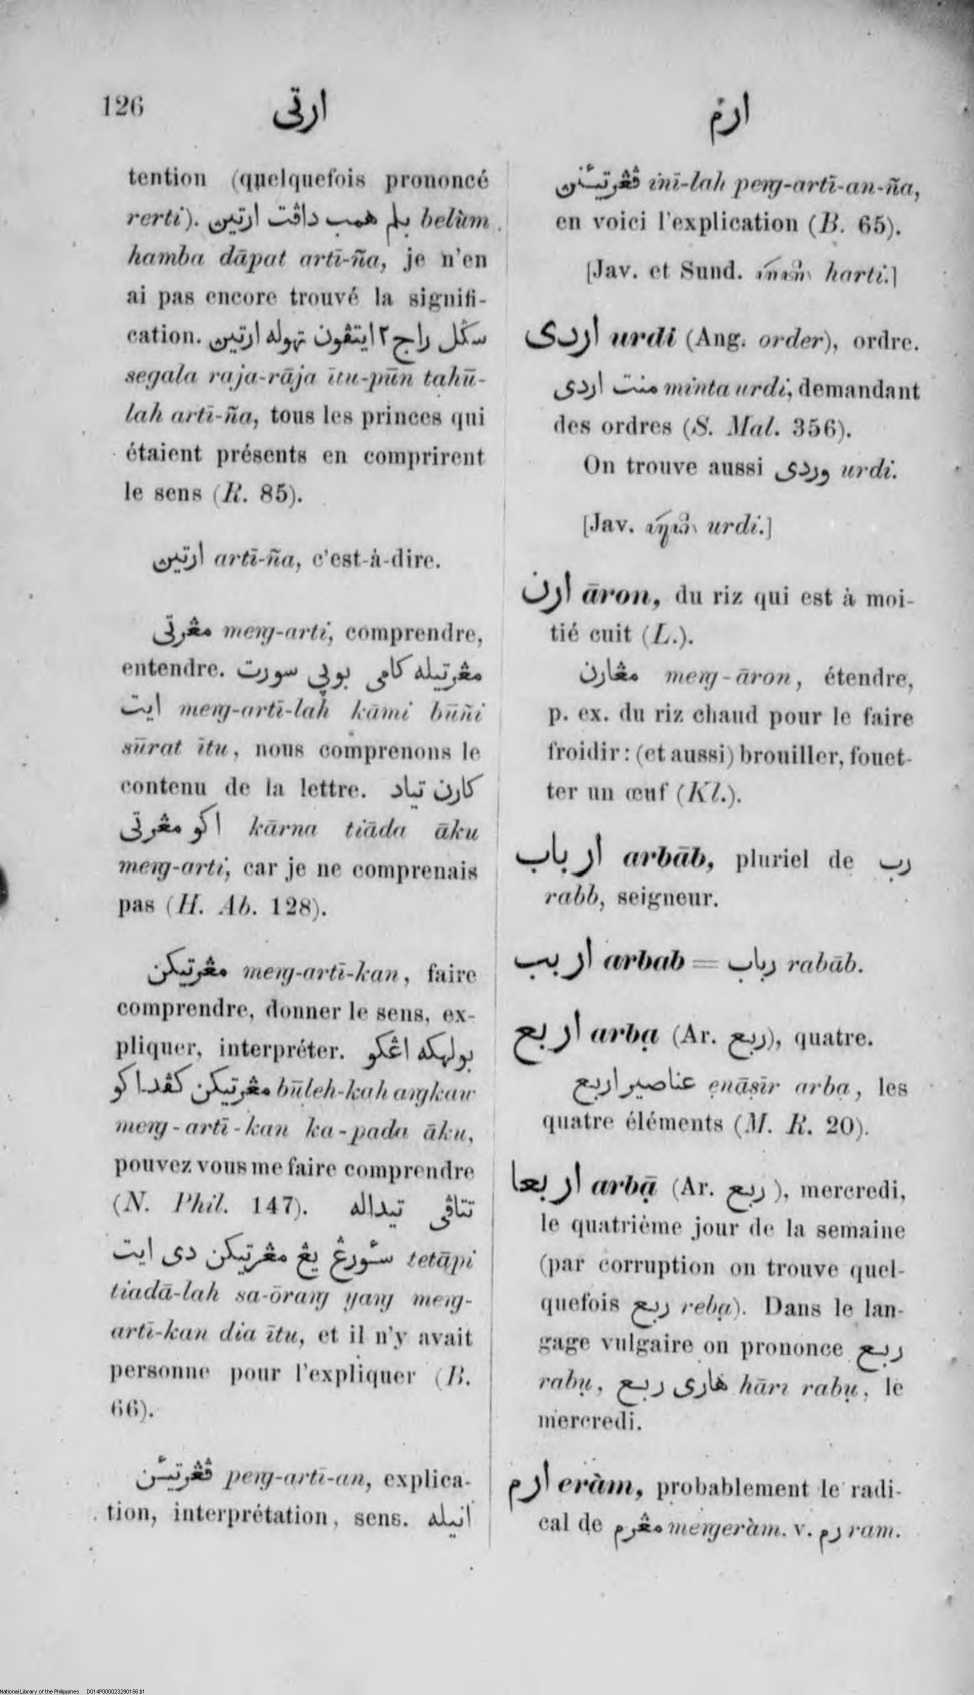 126
ارتي
ارم
tention (quelquefois prononcé
rerti). بلم همب داڤت ارتين belùm
hamba dāpat artī-ña, je n'en
ai pas encore trouvé la signifi-
cation. سکل راج ٢ ايتڤون تهوله ارتين
segala raja-rāja ītu-pūn tahū-
lah artī-ña, tous les princes qui
étaient présents en comprirent
le sens (R. 85).
ارتين artī-ña, c'est-à-dire.
مڠرتي meṅg-arti, comprendre,
entendre. مڠرتيله کامي بوڽي سورت
ايت meṅg-artī-lah kāmi būñi
sūrat ītu, nous comprenons le
contenu de la lettre. کارن تياد
اکو مڠرتي kārna tiāda āku
meṅg-arti, car je ne comprenais
pas (H. Ab. 128).
مڠرتيکن meṅg-artī-kan, faire
comprendre, donner le sens, ex-
pliquer, interpréter. بولهکه اڠکو
مڠرتيکن کڤد اکو būleh-kah aṅgkaw
meṅg-artī-kan ka-pada āku,
pouvez vous me faire comprendre
(N. Phil. 147). تتاڤي تيداله
سٔورڠ يڠ مڠرتيکن دي ايت tetāpi
tiadā-lah sa-ōraṅg yaṅg meṅg-
artī-kan dia ītu, et il n'y avait
personne pour l'expliquer (B.
66).
ڤڠرتيئن peṅg-artī-an, explica-
tion, interprétation, sens. انيله
ڤڠرتيئنن inī-lah peṅg-artī-an-ña,
en voici l'explication (B. 65).
[Jav. et Sund. harti.]
اردي urdi (Ang. order), ordre.
منت اردي minta urdi, demandant
des ordres (S. Mal. 356).
On trouve aussi وردي urdi.
[Jav. urdi.]
ارن āron, du riz qui est à moi-
tié cuit (L.).
مڠارن meṅg-āron, étendre,
p. ex. du riz chaud pour le faire
froidir: (et aussi) brouiller, fouet-
ter un œuf (Kl.).
ارباب arbāb, pluriel de رب
rabb, seigneur.
اربب arbab = رباب rabāb.
اربع arbạ (Ar. ربع), quatre.
عناصير اربع ẹnāṣīr arbạ, les
quatre éléments (M. R. 20).
اربعا arbạ̄ (Ar. ربع), mercredi,
le quatrième jour de la semaine
(par corruption on trouve quel-
quefois ربع rebạ). Dans le lan-
gage vulgaire on prononce ربع
rabụ, هاري ربع hāri rabụ, le
mercredi.
ارم eràm, probablement le radi-
cal de مڠرم meṅgeràm. v. رم ram.
National Library of the Philippines